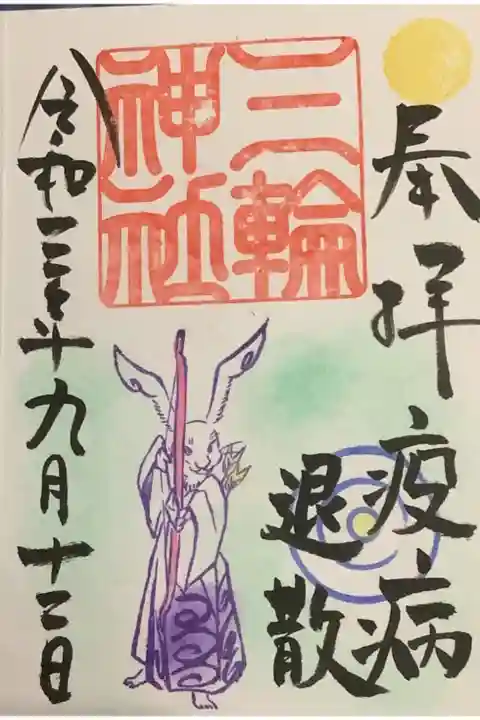 奉拝
疫病
退散
三輪
神社
令和三年九月十二日